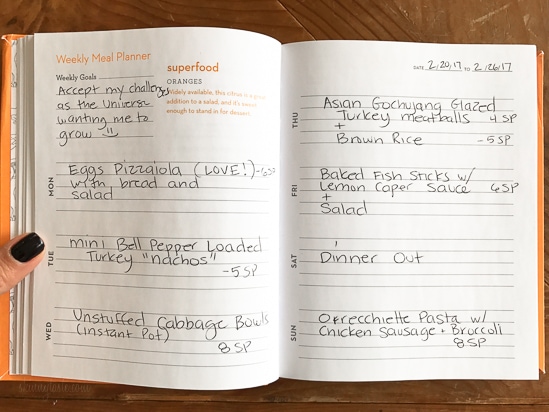 Weekly Meal Planner
Weekly Goals
Accept my challenges
as the Universe
wanting me to
grow
superfood
ORANGES
Widely available, this citrus is a
addition to a salad, and it's sweet
enough to stand in for dessert.
MON
Eggs Pizzaiola (LOVE!)
with bread and
salad
TUE
mini Bell Pepper Loaded
Turkey "nachos"
-5 SP
WED
Unstuffed Cabbage Bowls
(Instant Pot)
8 SP
DATE 2/20/17 TO 2/26/17
THU
Asian Gochujang Glazed
Turkey meatballs 4 SP
+
Brown Rice -5 SP
FRI
Baked Fish Sticks w/
Lemon Caper Sauce 6 SP
+
Salad
SAT
Dinner Out
SUN
Orrecchiette Pasta w/
Chicken Sausage + Broccoli
8 SP